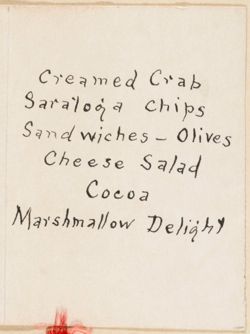 Creamed Crab
Saratoga Chips
Sandwiches - Olives
Cheese Salad
Cocoa
Marshmallow Delight